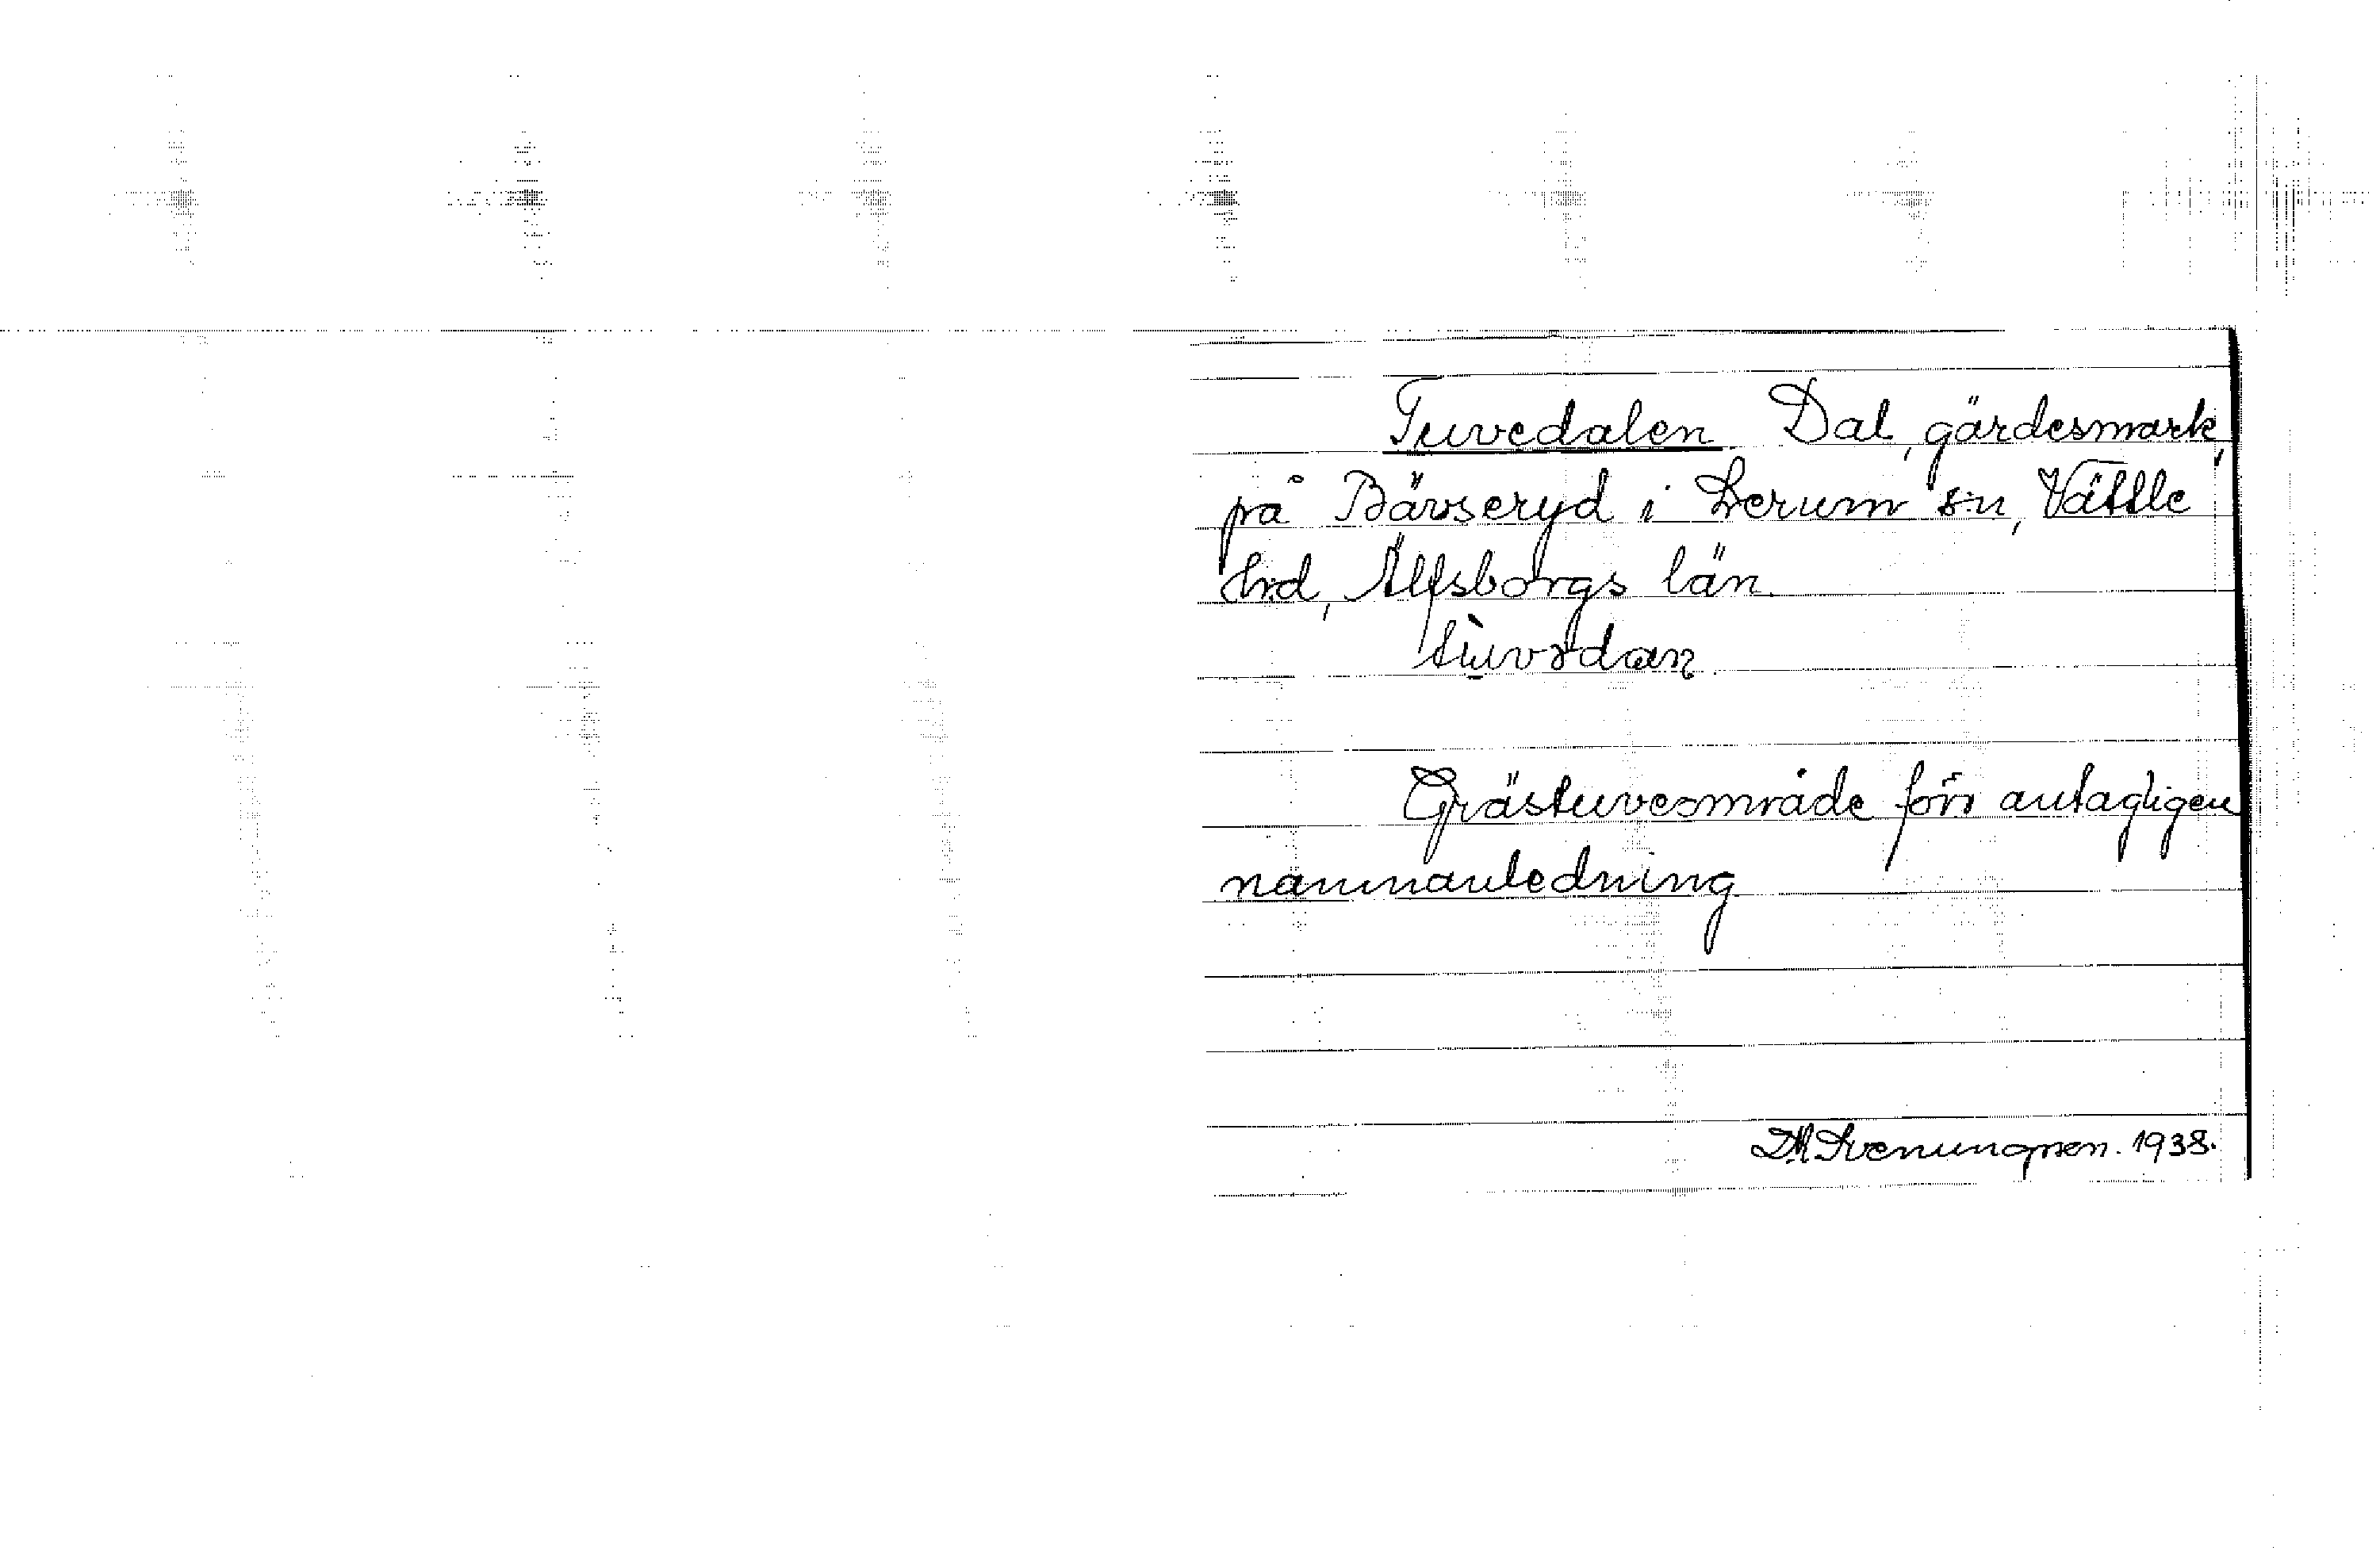 Tuvedalen. Dal, gärdesmark,
på Bävseryd i Lerum sn, Vättle
hrd, Älfsborgs län.
Grästuveområde förr antagligen
namnanledning
DM Svenungsson. 1938.